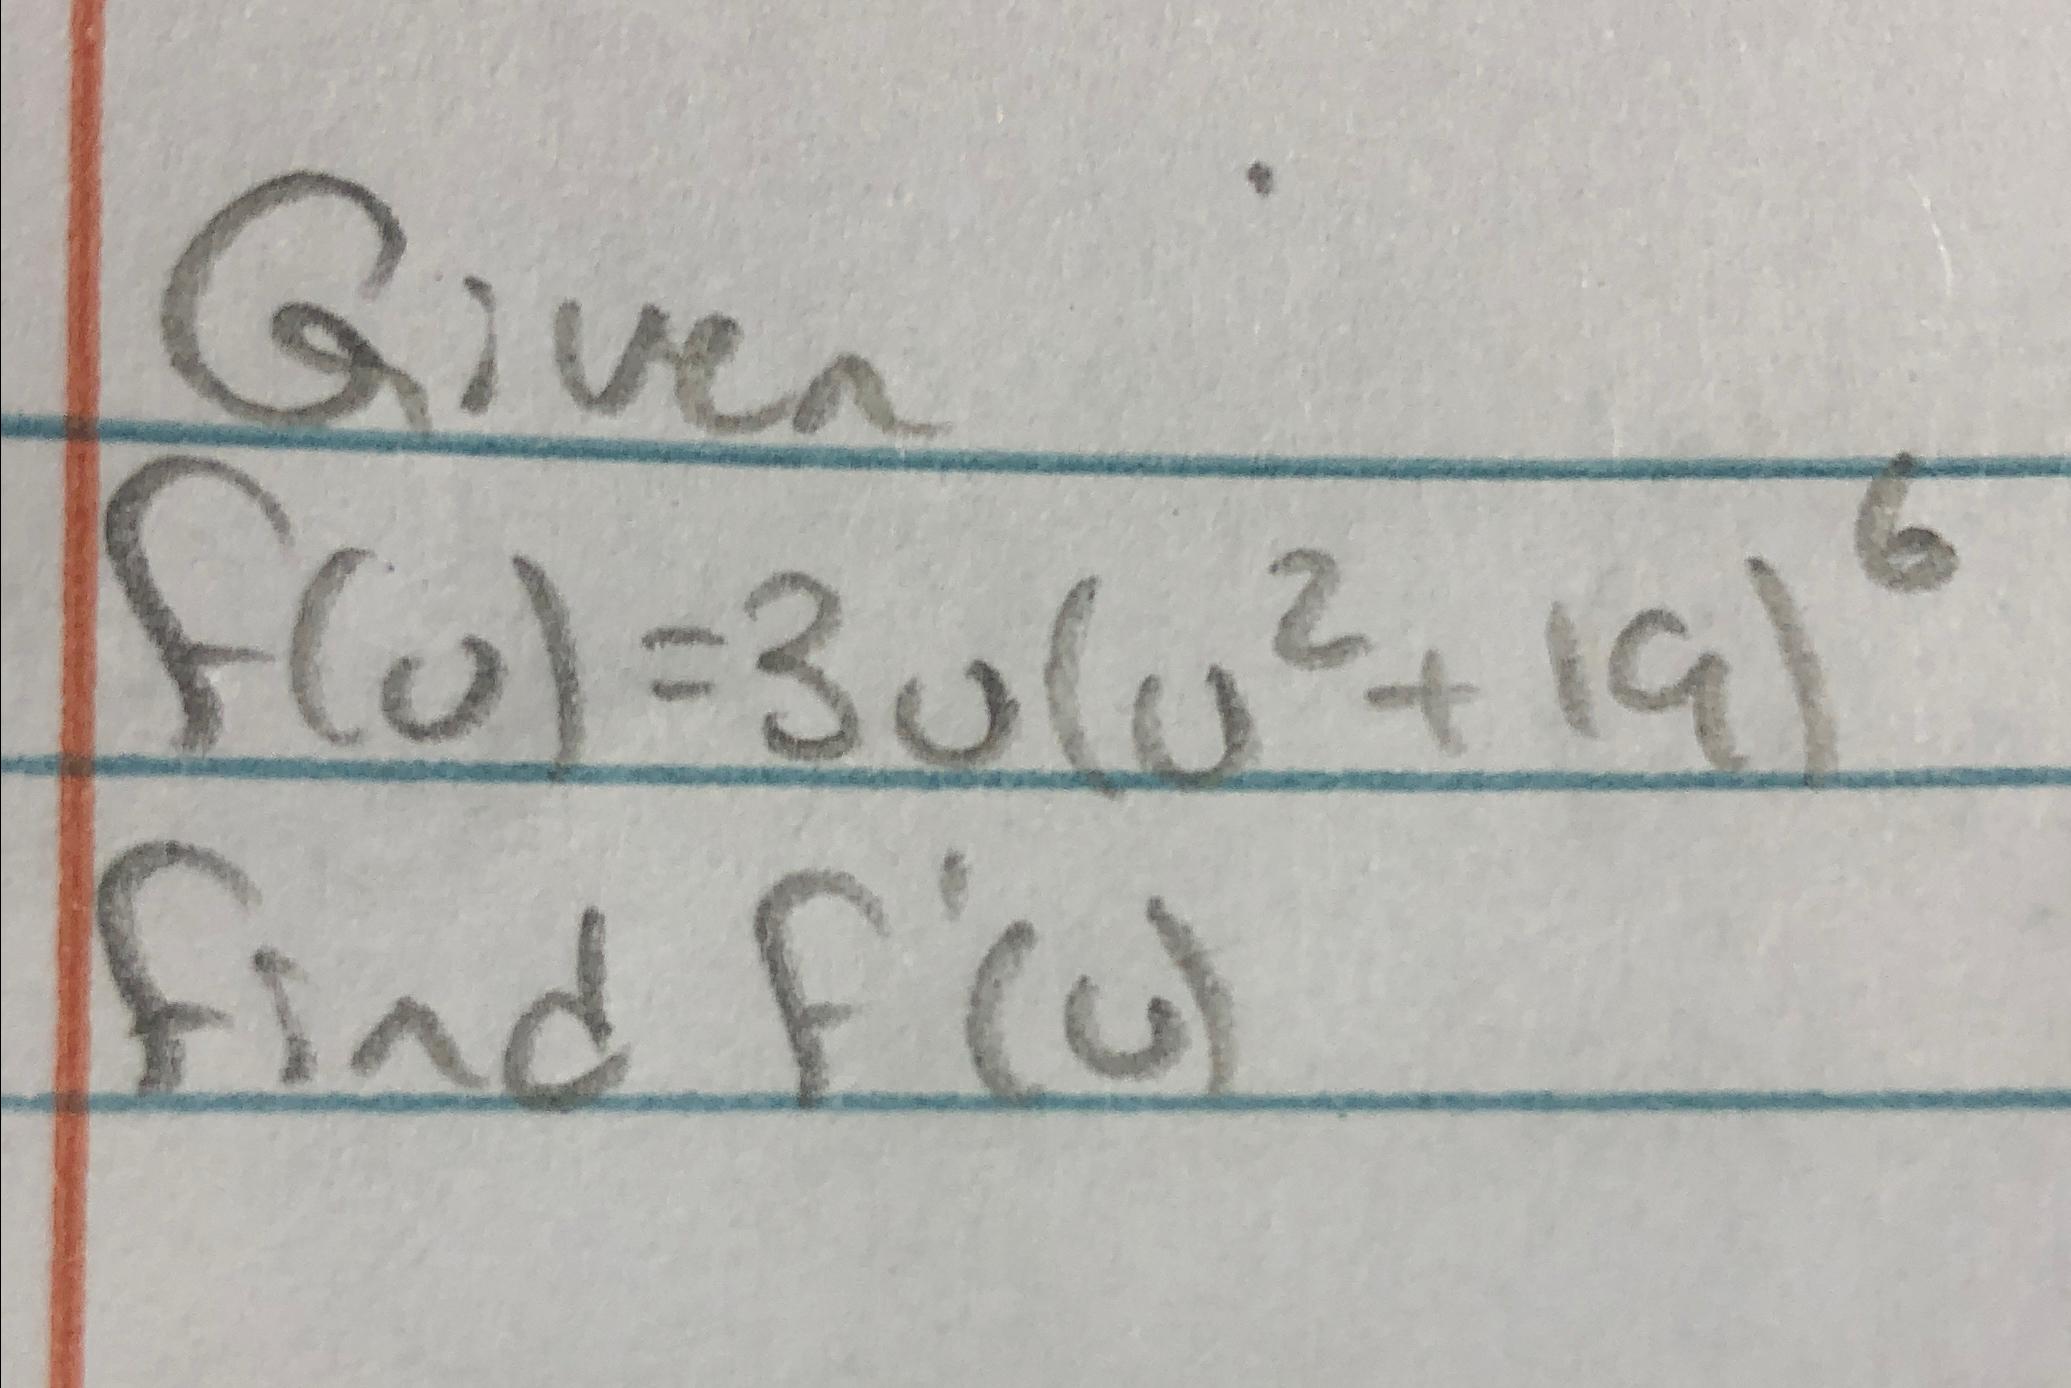 Given
f(u)=3u(u²+19)⁶
find f'(u)